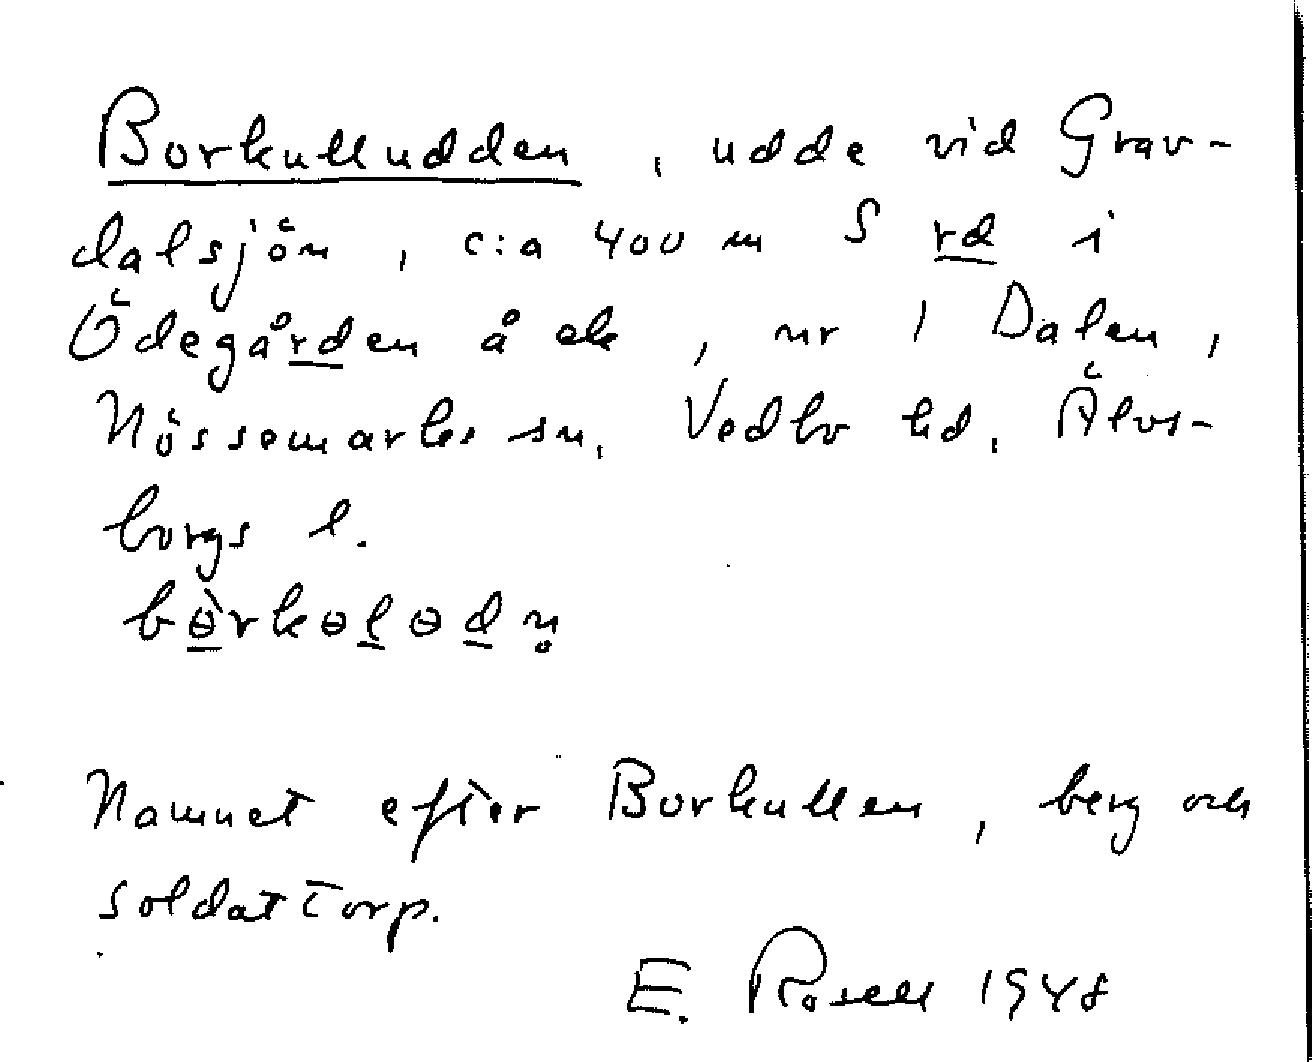 Borkulludden, udde vid Grav-
dalsjön, c:a 400 m S rd i
Ödegården å ek, nr 1 Dalen,
Nössemarks sn, Vedbo hd, Älvs-
borgs l.
bɵ̀rkɵlɵdn̥
Namnet efter Borkullen, berg och
soldattorp.
E. Rosell 1948